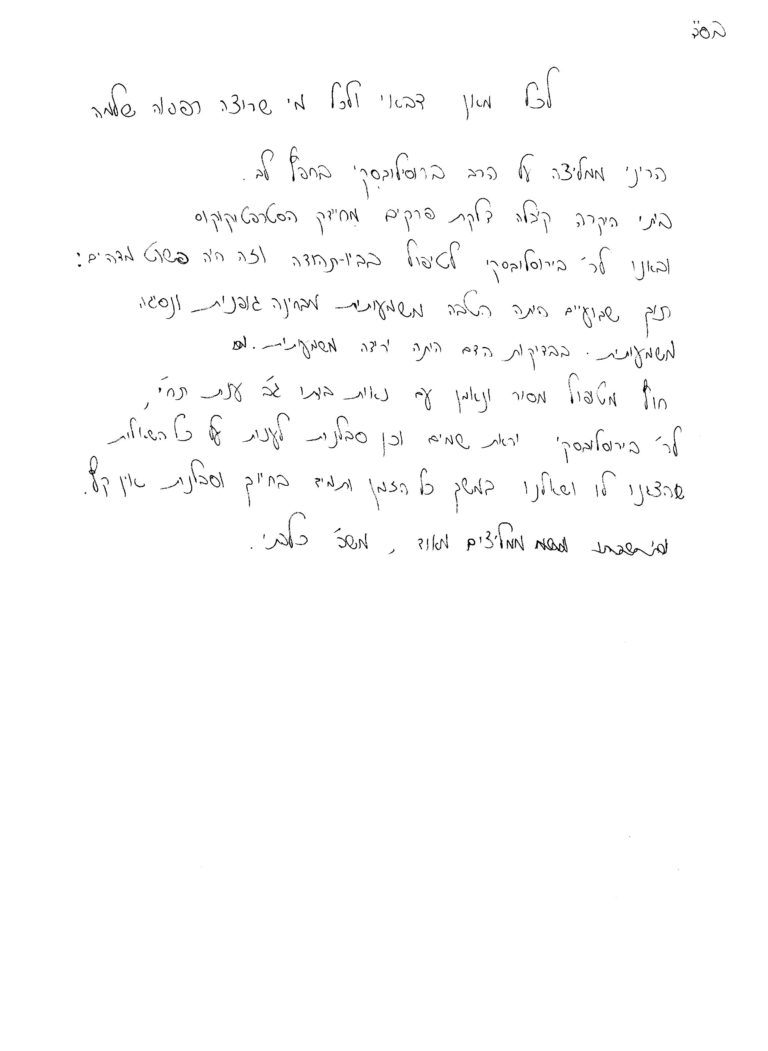 בס"ד
לכל מאן דבאי ולכל מי שרוצה רפואה שלמה
הריני ממליצה על הרב ברוסילובסקי בחפץ לב.
ביתי היקרה קיבלה דלקת פרקים מחיידק הסטרפטוקוקוס
ובאנו לר' בירוסלובסקי לטיפול בביו-תהודה וזה היה פשוט מדהים:
תוך שבועיים היתה הטבה משמעותית מבחינה גופנית ונסגה
משמעותית. בבדיקות הדם היתה ירידה משמעותית.
חוץ מטיפול מסיר ונאמן עם נאות ביתו גב' ענת תחי',
לר' בירוסלובסקי יראת שמים וכן סבלנות לענות על כל השאלות
שהצגנו לו ושאלנו במשך כל הזמן ותמיד בחיוך וסבלנות אין קץ.
ממליצים מאוד, משפ'